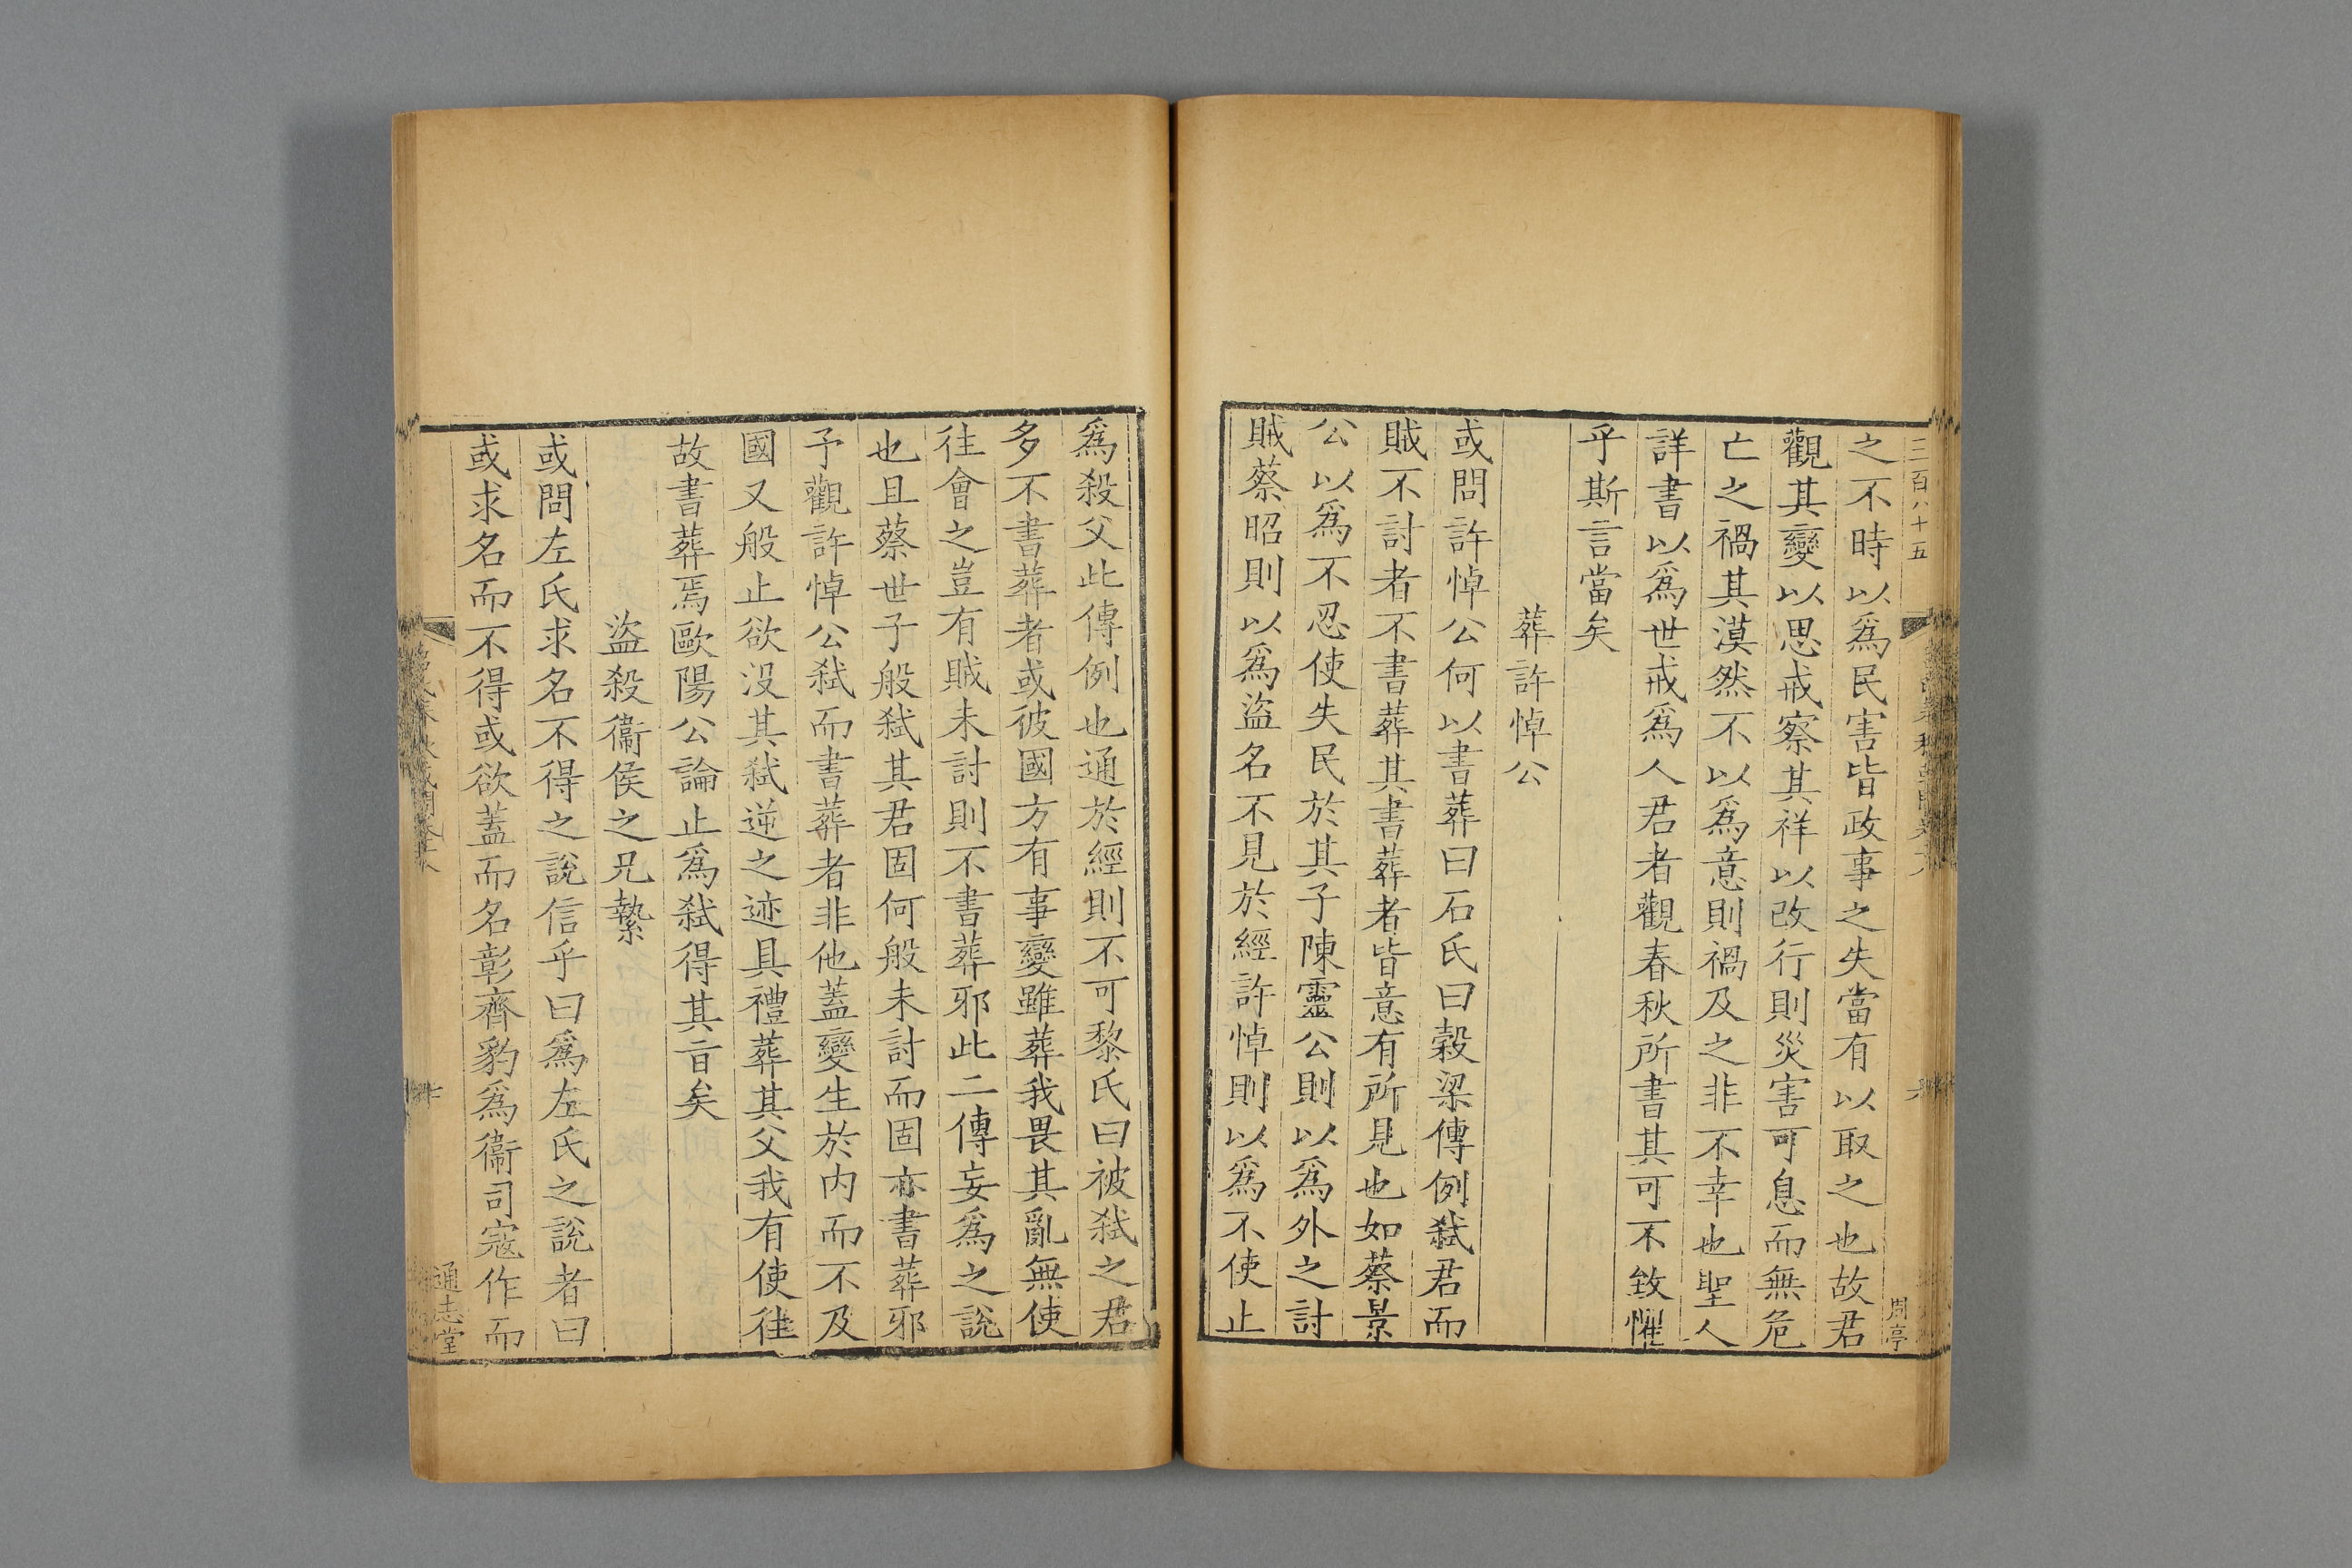 三百八十五
之不時以爲民害皆政事之失當有以取之也故君
觀其變以思戒察其祥以改行則災害可息而無危
亡之禍其漠然不以爲意則禍及之非不幸也聖人
詳書以爲世戒爲人君者觀春秋所書其可不致懼
乎斯言當矣
葬許悼公
或問許悼公何以書葬曰石氏曰穀梁傳例弑君而
賊不討者不書葬其書葬者皆意有所見也如蔡景
公以爲不忍使失民於其子陳靈公則以爲外之討
賊蔡昭則以爲盜名不見於經許悼則以爲不使止
爲殺父此傳例也通於經則不可黎氏曰被弑之君
多不書葬者或彼國方有事變雖葬我畏其亂無使
往會之豈有賊未討則不書葬邪此二傳妄爲之說
也且蔡世子般弑其君固何般未討而固亦書葬邪
予觀許悼公弑而書葬者非他蓋變生於内而不及
國又般止欲没其弑逆之迹具禮葬其父我有使往
故書葬焉歐陽公論止爲弑得其㫖矣
盜殺衞侯之兄縶
或問左氏求名不得之說信乎曰爲左氏之說者曰
或求名而不得或欲蓋而名彰齊豹爲衞司寇作而
通志堂
周亭